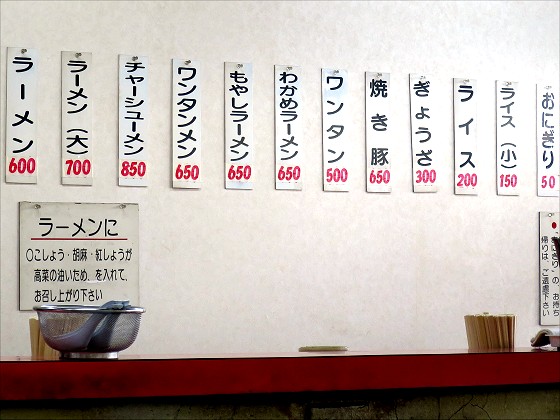 ラーメン
600
ラーメン(大)
700
チャーシューメン
850
ワンタンメン
650
もやしラーメン
650
わかめラーメン
650
ワンタン
500
焼き豚
650
ぎょうざ
300
ライス
200
ライス(小)
150
おにぎり
50
ラーメンに
〇こしょう・胡麻・紅しょうが
高菜の油いため、を入れて、
お召し上がり下さい
おにぎり”の、お持ち
帰りは、ご遠慮下さい